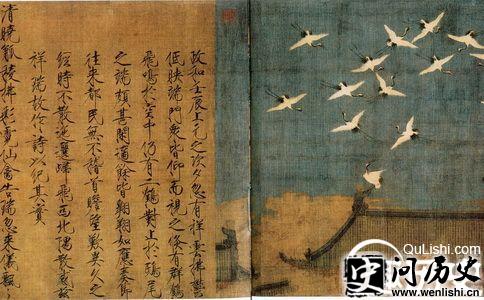 政和壬辰上元之次夕忽有祥雲拂鬱
低映端門衆皆仰而視之倏有群鶴
飛鳴於空中仍有二鶴對止於鴟尾
之端頗甚閑適餘皆翱翔如應奏節
往來都民無不稽首瞻望歎異久之
經時不散迤邐歸飛西北隅散感茲
祥瑞故作詩以紀其實
清曉觚稜拂彩霓仙禽告瑞忽來儀飄
QuLishi.com
问历史
www.wenlishi.com